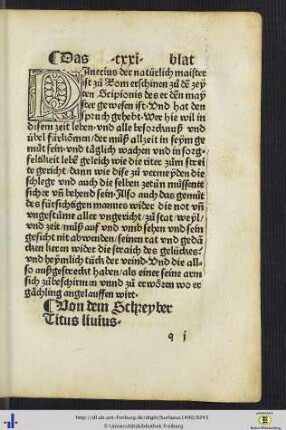 ¶Das ·cxxi· blat
Pinecius der natürlich maister
ist zů Rom erschinen zů dē zey
ten Scipionis des er dēn may
ster gewesen ist·Vnd hat den
spruch gehebt·Wer hie wil in
disem zeit leben·vnd alle besorcknuß vnd
übel fürkōmen/der můß allzeit in seym ge
můt sein·vnd täglich wachen vnd in sorg⸗
feltikeit lebē gleich wie die riter zům strei
te gericht/dann wie dise zů vermeyden die
schlege vnd auch die selben zetůn müssent
sicher vñ behend sein·Also auch das gemüt
des fürsichtigen mannes wider die not vñ
vngestüme aller vngericht/zů stat/weyl/
vnd zeit/můß auf vnd vmb sehen vnd sein
gesicht nit abwenden/seinen rat vnd gedā
cken keren wider die straich des gelückes/
vnd heymlich tück der veind·Vnd die all⸗
so außgestreckt haben/als einer seine arm
sich zůbeschirmen vnd zů erwörn wo er
gächling angelauffen wirt·
¶Von dem Schreyber
Titus liuius·
q j
http://dl.ub.uni-freiburg.de/diglit/burlaeus1490/0243
© Universitätsbibliothek Freiburg